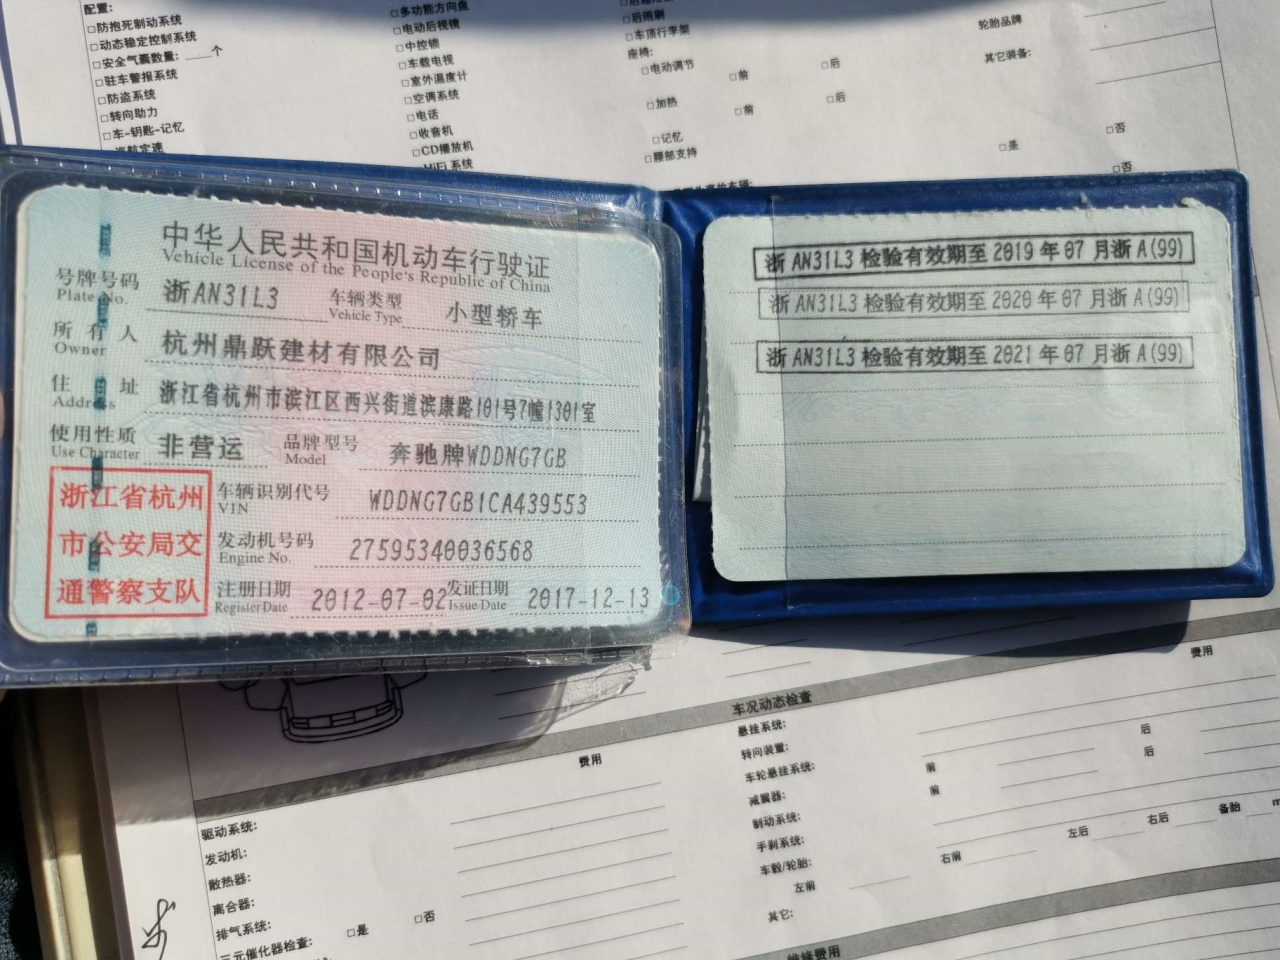 配置:
□防抱死制动系统
□动态稳定控制系统
□安全气囊数量: ___个
□驻车警报系统
□防盗系统
□转向助力
□车-钥匙-记忆
巡航定速
□多功能方向盘
□电动后视镜
□中控锁
□车载电视
□室外温度计
□空调系统
□电话
□收音机
□CD播放机
HiFi 系统
□后雨刷
□车顶行李架
座椅:
□电动调节 □前 □后
□加热 □前 □后
□记忆
□腰部支持
轮胎品牌
其它装备:
□是 □否
□否
中华人民共和国机动车行驶证
Vehicle License of the People's Republic of China
号牌号码 浙AN31L3 车辆类型 小型轿车
Plate No. Vehicle Type
所有人 杭州鼎跃建材有限公司
Owner
住址 浙江省杭州市滨江区西兴街道滨康路101号7幢1301室
Address
使用性质 非营运 品牌型号 奔驰牌WDDNG7GB
Use Character Model
浙江省杭州
市公安局交
通警察支队
车辆识别代号 WDDNG7GB1CA439553
VIN
发动机号码 27595340036568
Engine No.
注册日期 2012-07-02 发证日期 2017-12-13
Register Date Issue Date
浙AN31L3检验有效期至2019年07月浙A(99)
浙AN31L3检验有效期至2020年07月浙A(99)
浙AN31L3检验有效期至2021年07月浙A(99)
费用
驱动系统:
发动机:
散热器:
离合器:
排气系统:
三元催化器检查: □是 □否
费用
车况动态检查
悬挂系统:
转向装置:
车轮悬挂系统: 前 后
减震器: 前 后
制动系统:
手刹系统:
车毂/轮胎: 左后 右后 备胎
左前 右前
其它:
维修费用